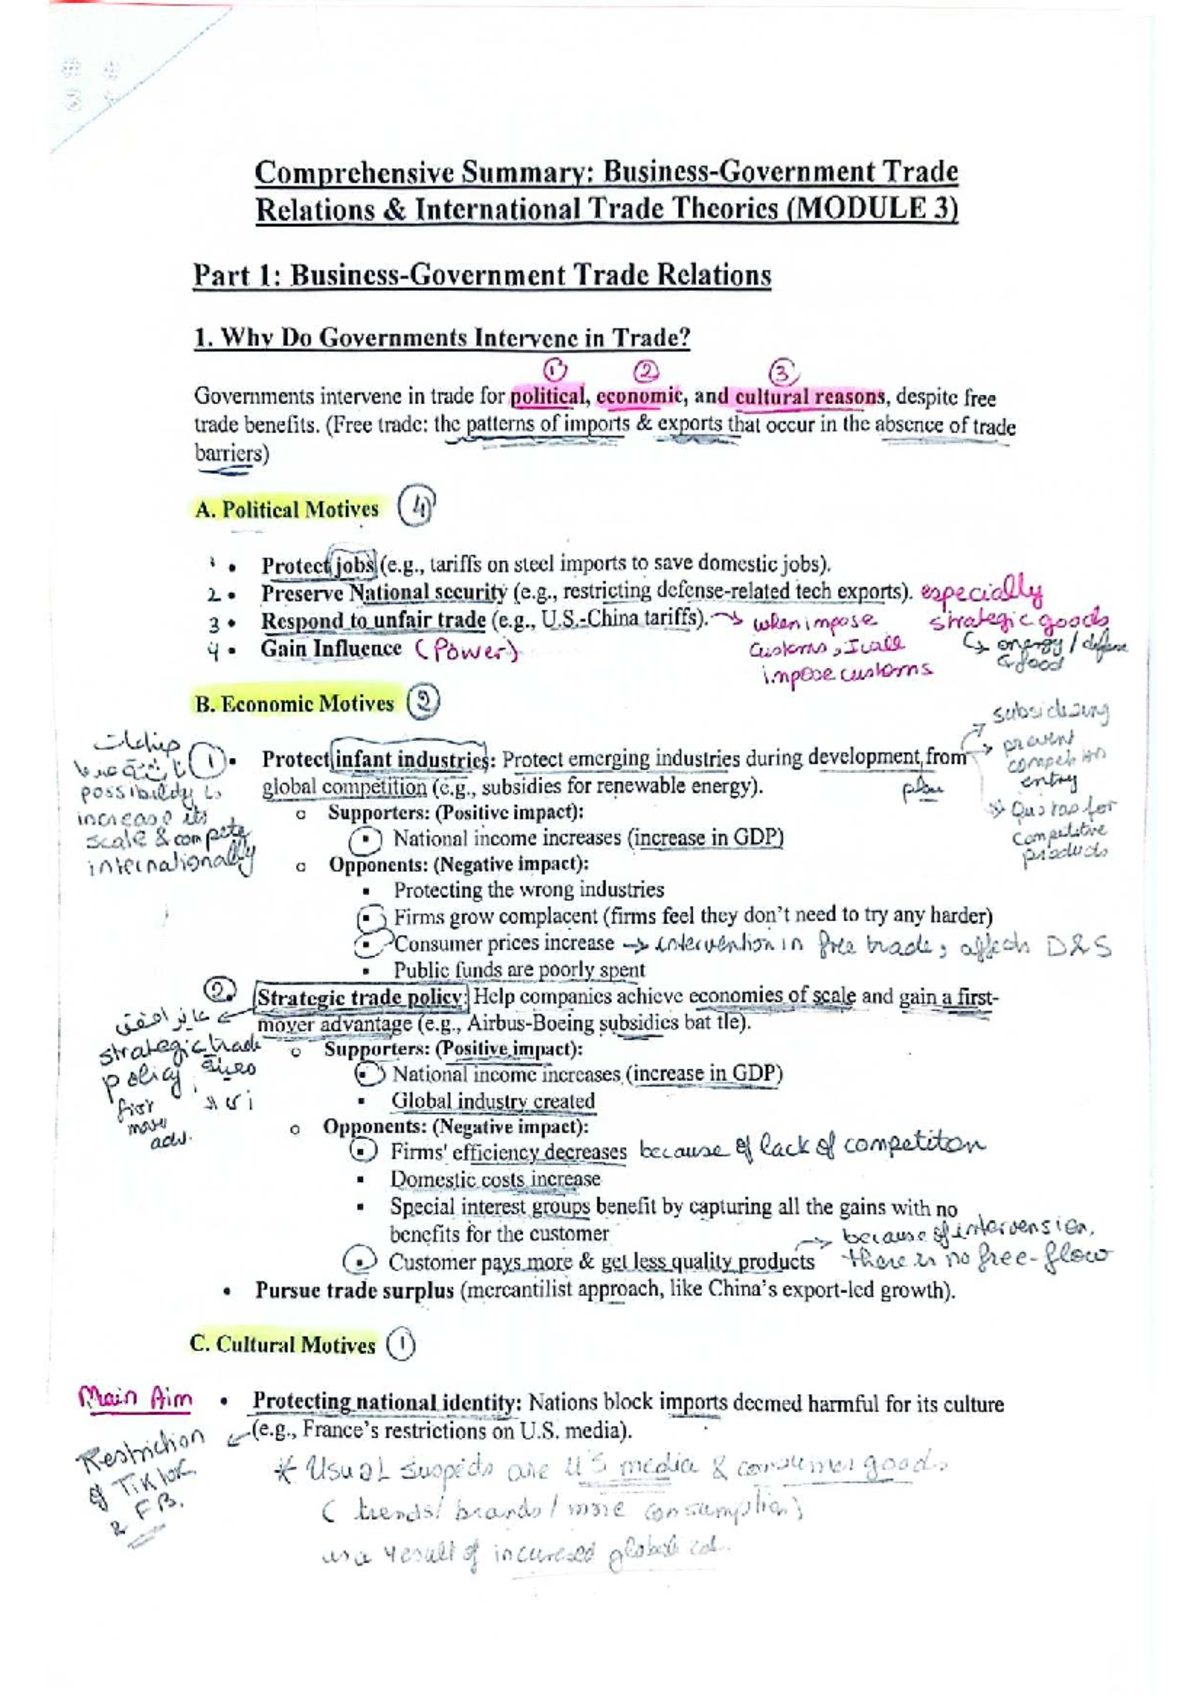 Comprehensive Summary: Business-Government Trade
Relations & International Trade Theories (MODULE 3)
Part 1: Business-Government Trade Relations
1. Why Do Governments Intervene in Trade?
1 2 3
Governments intervene in trade for political, economic, and cultural reasons, despite free
trade benefits. (Free trade: the patterns of imports & exports that occur in the absence of trade
barriers)
A. Political Motives 4
1 • Protect jobs (e.g., tariffs on steel imports to save domestic jobs).
2 • Preserve National security (e.g., restricting defense-related tech exports). especially
strategic goods
↳ energy / defense
& food
3 • Respond to unfair trade (e.g., U.S.-China tariffs). → when impose
customs, I will
impose customs
4 • Gain Influence (Power)
B. Economic Motives 2
→ subsidizing
→ prevent
competition
entry
→ Quotas for
competitive
products
1 • Protect infant industries: Protect emerging industries during development from
صناعات
possibility
increase its
scale & compete
internationally
global competition (e.g., subsidies for renewable energy). plan
o Supporters: (Positive impact):
▪ National income increases (increase in GDP)
o Opponents: (Negative impact):
▪ Protecting the wrong industries
▪ Firms grow complacent (firms feel they don't need to try any harder)
▪ Consumer prices increase → intervention in free trade, affects D&S
▪ Public funds are poorly spent
2. Strategic trade policy: Help companies achieve economies of scale and gain a first-
mover advantage (e.g., Airbus-Boeing subsidies bat tle).
strategic trade
policy
first
move
adv.
o Supporters: (Positive impact):
▪ National income increases (increase in GDP)
▪ Global industry created
o Opponents: (Negative impact):
▪ Firms' efficiency decreases because of lack of competiton
▪ Domestic costs increase
▪ Special interest groups benefit by capturing all the gains with no
benefits for the customer
▪ Customer pays more & get less quality products → because of intervension,
there is no free-flow
• Pursue trade surplus (mercantilist approach, like China's export-led growth).
C. Cultural Motives 1
Main Aim • Protecting national identity: Nations block imports deemed harmful for its culture
(e.g., France's restrictions on U.S. media).
Restriction
of TikTok
& FB.
* Usual suspects are US media & consumer goods.
( trends/ brands/ more consumption)
as a result of increased global